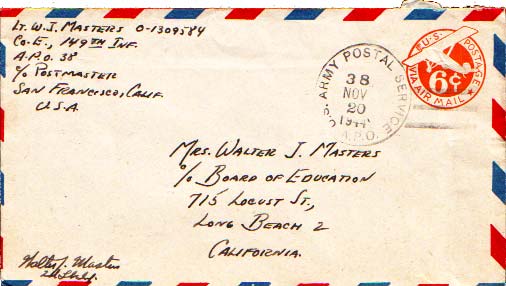 Lt. W. J. Masters O-1309584
Co. E., 149TH Inf.
A.P.O. 38
c/o Postmaster
San Francisco, Calif.
U.S.A.
U.S. ARMY POSTAL SERVICE
38
NOV
20
1944
A.P.O.
U.S. POSTAGE
6¢
VIA AIR MAIL
Mrs. Walter J. Masters
c/o Board of Education
715 Locust St.,
Long Beach 2
California.
Walter J. Masters